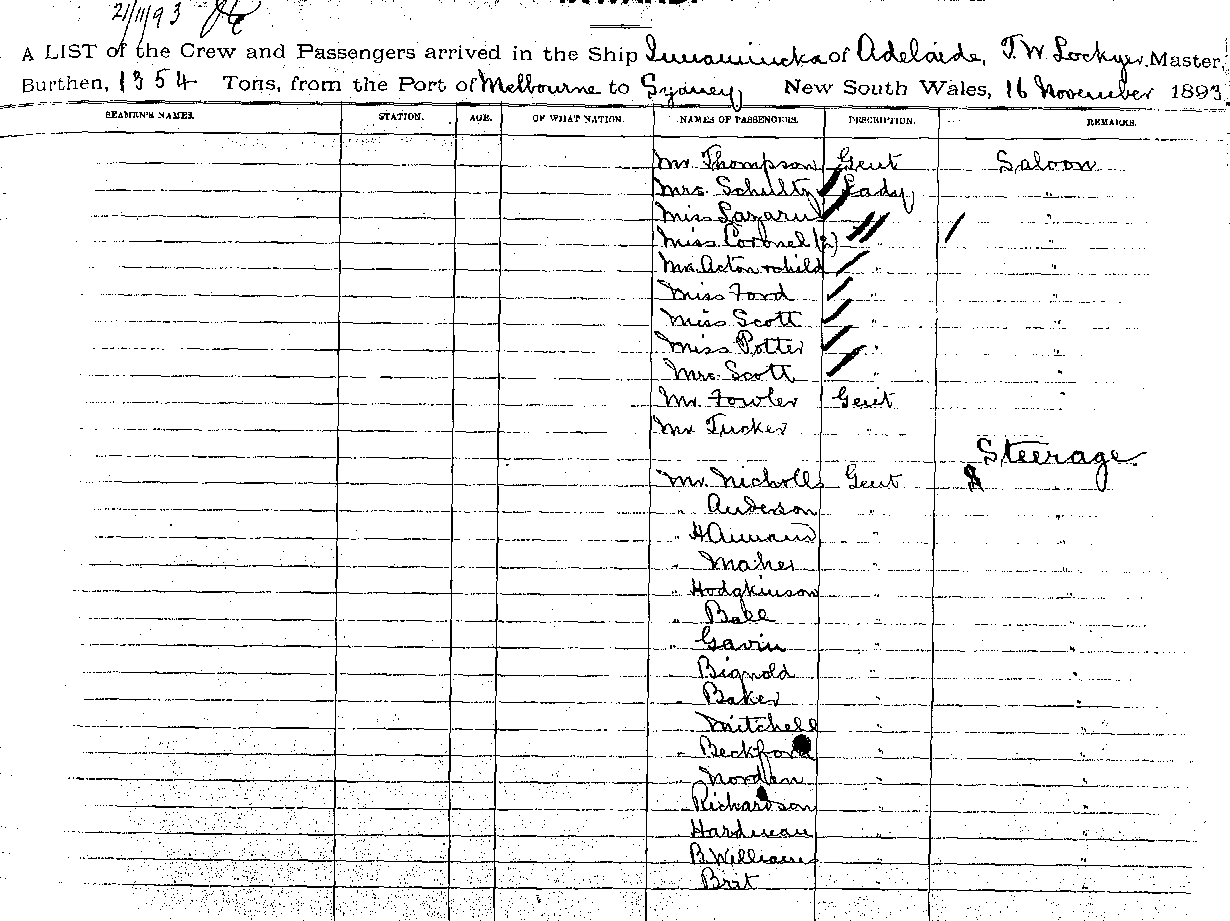 21/11/93
A LIST of the Crew and Passengers arrived in the Ship Innamincka of Adelaide, T. W. Lockyer, Master,
Burthen, 1354 Tons, from the Port of Melbourne to Sydney New South Wales, 16 November 1893.
SEAMEN'S NAMES. STATION. AGE. OF WHAT NATION. NAMES OF PASSENGERS. DESCRIPTION. REMARKS.
Mr. Thompson Gent Saloon
Mrs. Schultz Lady "
Miss Lazarus "
Miss Coronel (2) "
Mrs. Acton & child " "
Miss Ford " "
Miss Scott " "
Miss Potter " "
Mrs. Scott " "
Mr. Fowler Gent "
Mr Tucker "
Steerage
Mr. Nicholls Gent
Anderson " "
" " "
" Maher " "
" Hodgkinson " "
" Ball " "
" Gavin " "
Bignold " "
Baker " "
Mitchell " "
" Beckford " "
Norden " "
Richardson " "
Hardman " "
B. Williams " "
Brit "